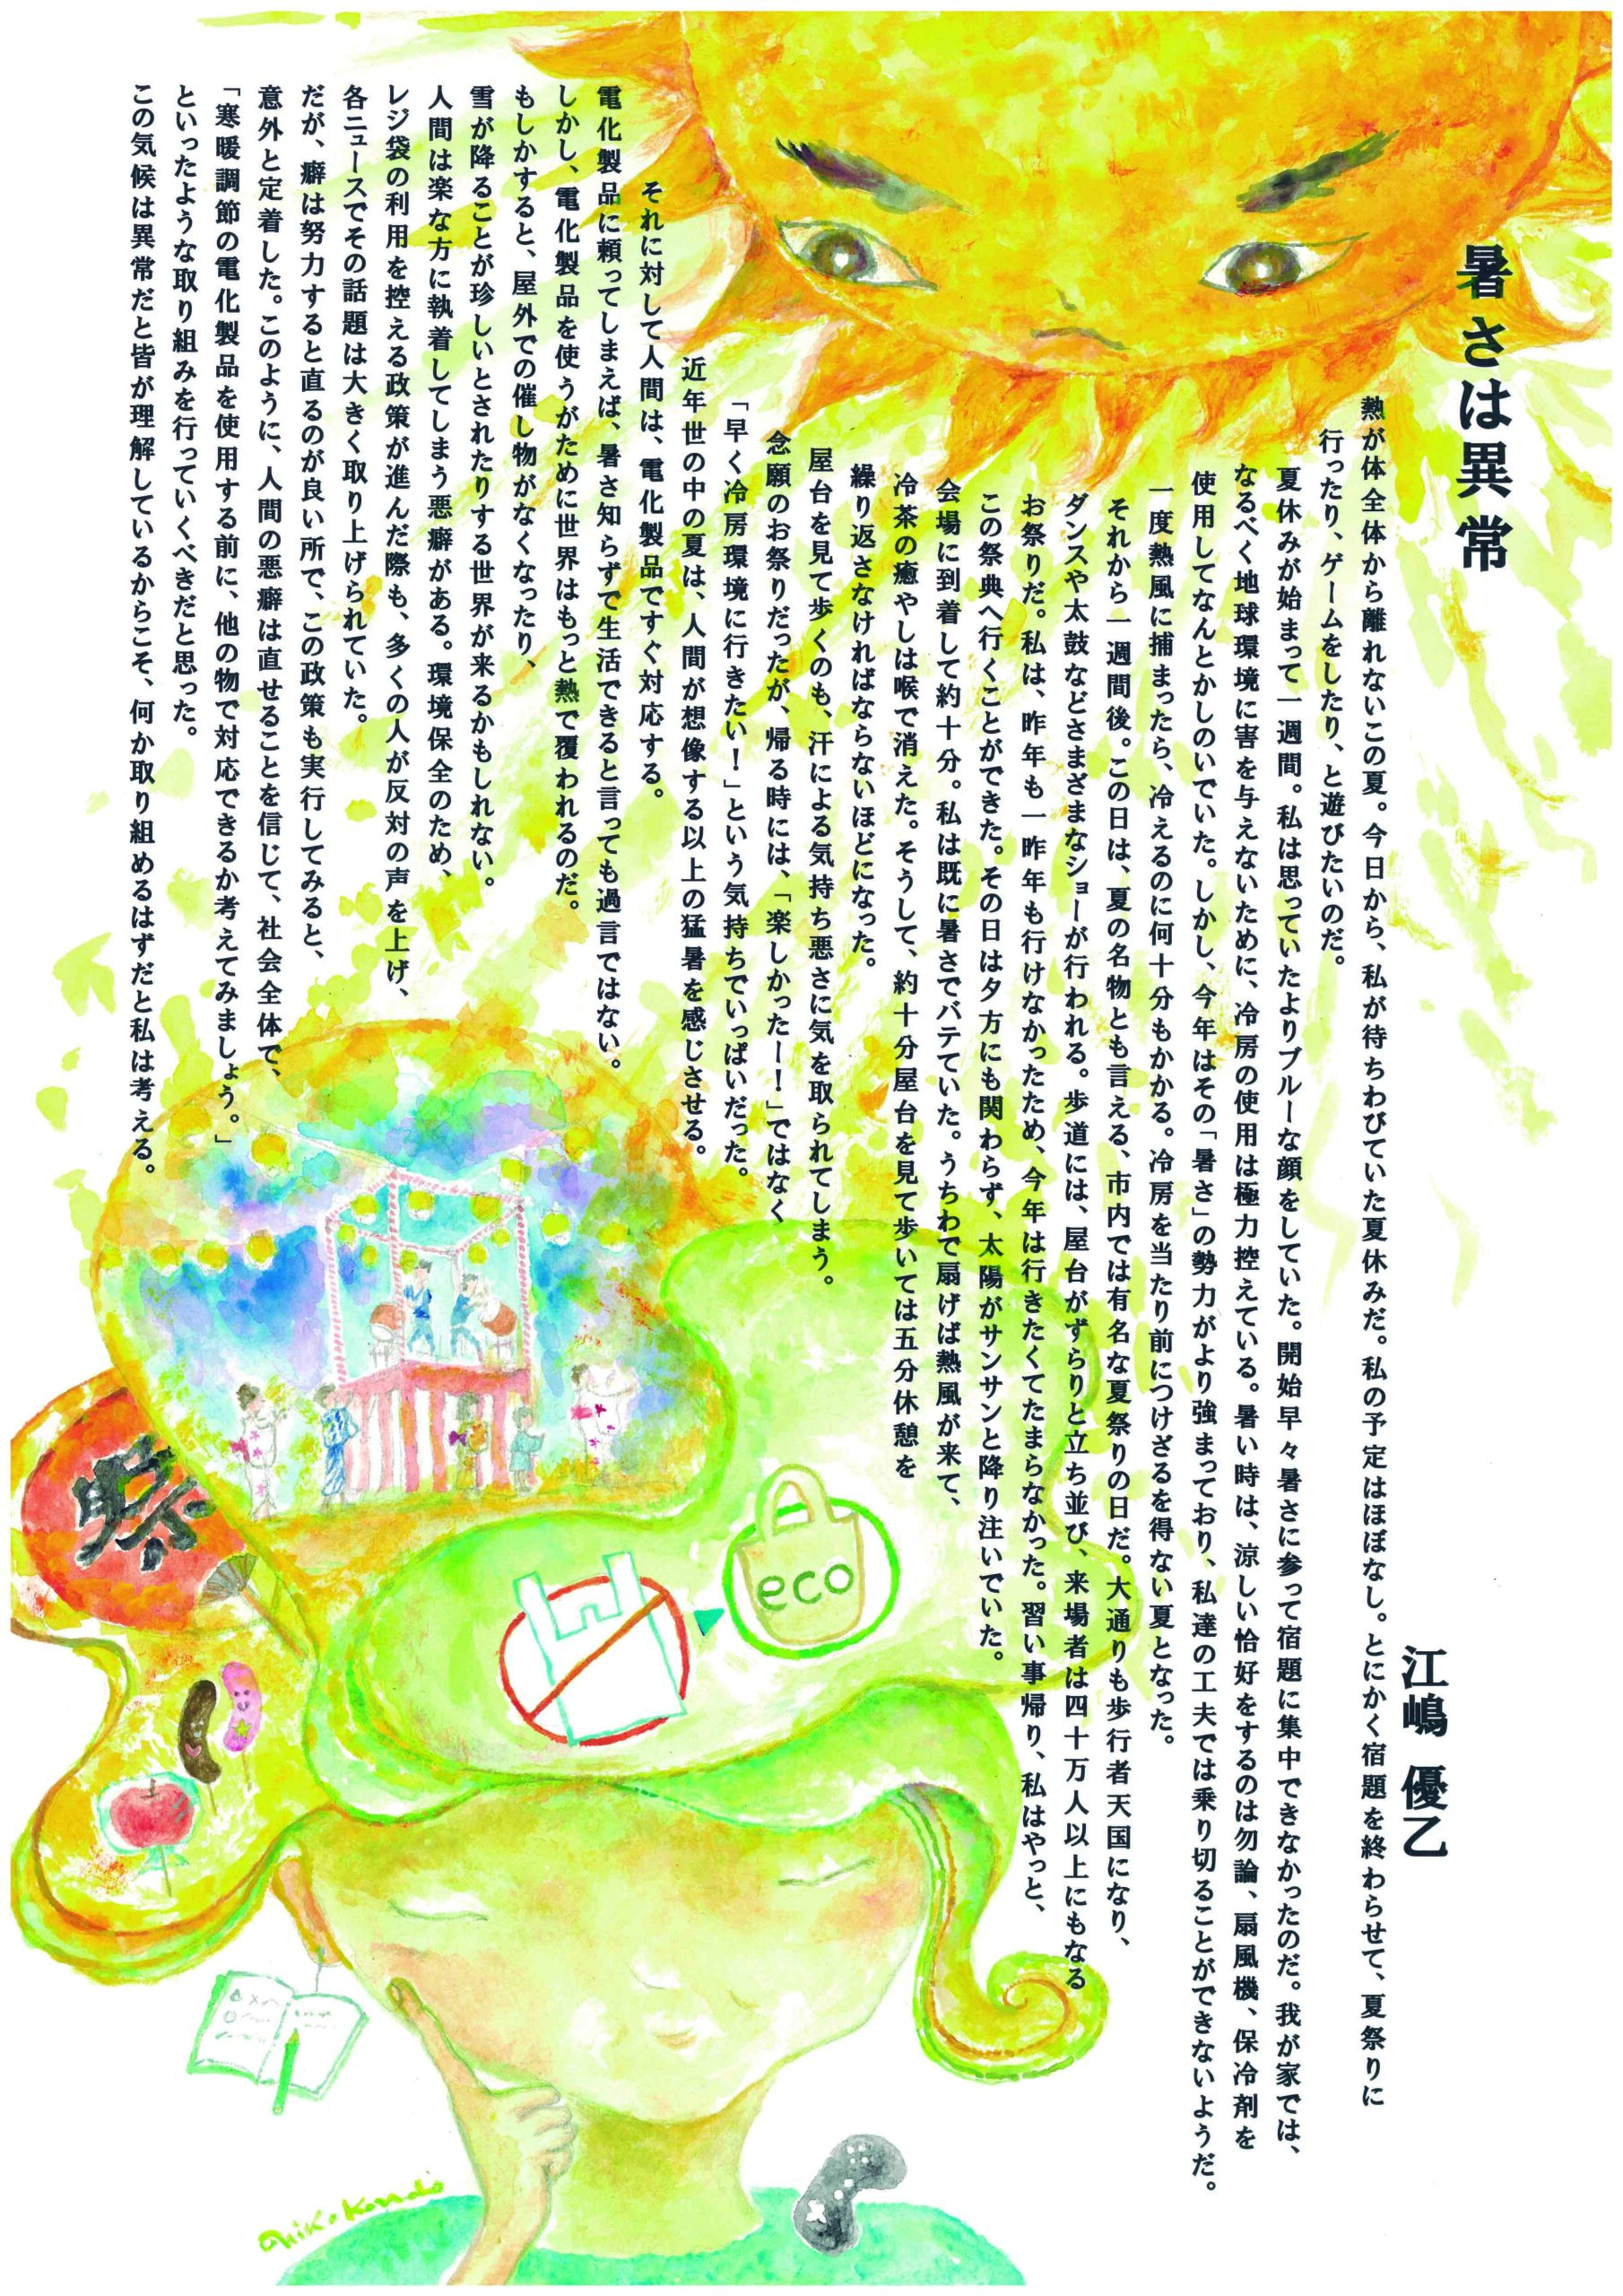 暑さは異常
江嶋 優乙
熱が体全体から離れないこの夏。今日から、私が待ちわびていた夏休みだ。私の予定はほぼなし。とにかく宿題を終わらせて、夏祭りに
行ったり、ゲームをしたり、と遊びたいのだ。
夏休みが始まって一週間。私は思っていたよりブルーな顔をしていた。開始早々暑さに参って宿題に集中できなかったのだ。我が家では、
なるべく地球環境に害を与えないために、冷房の使用は極力控えている。暑い時は、涼しい恰好をするのは勿論、扇風機、保冷剤を
使用してなんとかしのいでいた。しかし、今年はその「暑さ」の勢力がより強まっており、私達の工夫では乗り切ることができないようだ。
一度熱風に捕まったら、冷えるのに何十分もかかる。冷房を当たり前につけざるを得ない夏となった。
それから一週間後。この日は、夏の名物とも言える、市内では有名な夏祭りの日だ。大通りも歩行者天国になり、
ダンスや太鼓などさまざまなショーが行われる。歩道には、屋台がずらりと立ち並び、来場者は四十万人以上にもなる
お祭りだ。私は、昨年も一昨年も行けなかったため、今年は行きたくてたまらなかった。習い事帰り、私はやっと、
この祭典へ行くことができた。その日は夕方にも関わらず、太陽がサンサンと降り注いでいた。
会場に到着して約十分。私は既に暑さでバテていた。うちわで扇げば熱風が来て、
冷茶の癒やしは喉で消えた。そうして、約十分屋台を見て歩いては五分休憩を
繰り返さなければならないほどになった。
屋台を見て歩くのも、汗による気持ち悪さに気を取られてしまう。
念願のお祭りだったが、帰る時には、「楽しかったー！」ではなく
「早く冷房環境に行きたい！」という気持ちでいっぱいだった。
近年世の中の夏は、人間が想像する以上の猛暑を感じさせる。
それに対して人間は、電化製品ですぐ対応する。
電化製品に頼ってしまえば、暑さ知らずで生活できると言っても過言ではない。
しかし、電化製品を使うがために世界はもっと熱で覆われるのだ。
もしかすると、屋外での催し物がなくなったり、
雪が降ることが珍しいとされたりする世界が来るかもしれない。
人間は楽な方に執着してしまう悪癖がある。環境保全のため、
レジ袋の利用を控える政策が進んだ際も、多くの人が反対の声を上げ、
各ニュースでその話題は大きく取り上げられていた。
だが、癖は努力すると直るのが良い所で、この政策も実行してみると、
意外と定着した。このように、人間の悪癖は直せることを信じて、社会全体で、
「寒暖調節の電化製品を使用する前に、他の物で対応できるか考えてみましょう。」
といったような取り組みを行っていくべきだと思った。
この気候は異常だと皆が理解しているからこそ、何か取り組めるはずだと私は考える。
祭
eco
aiko Kondo